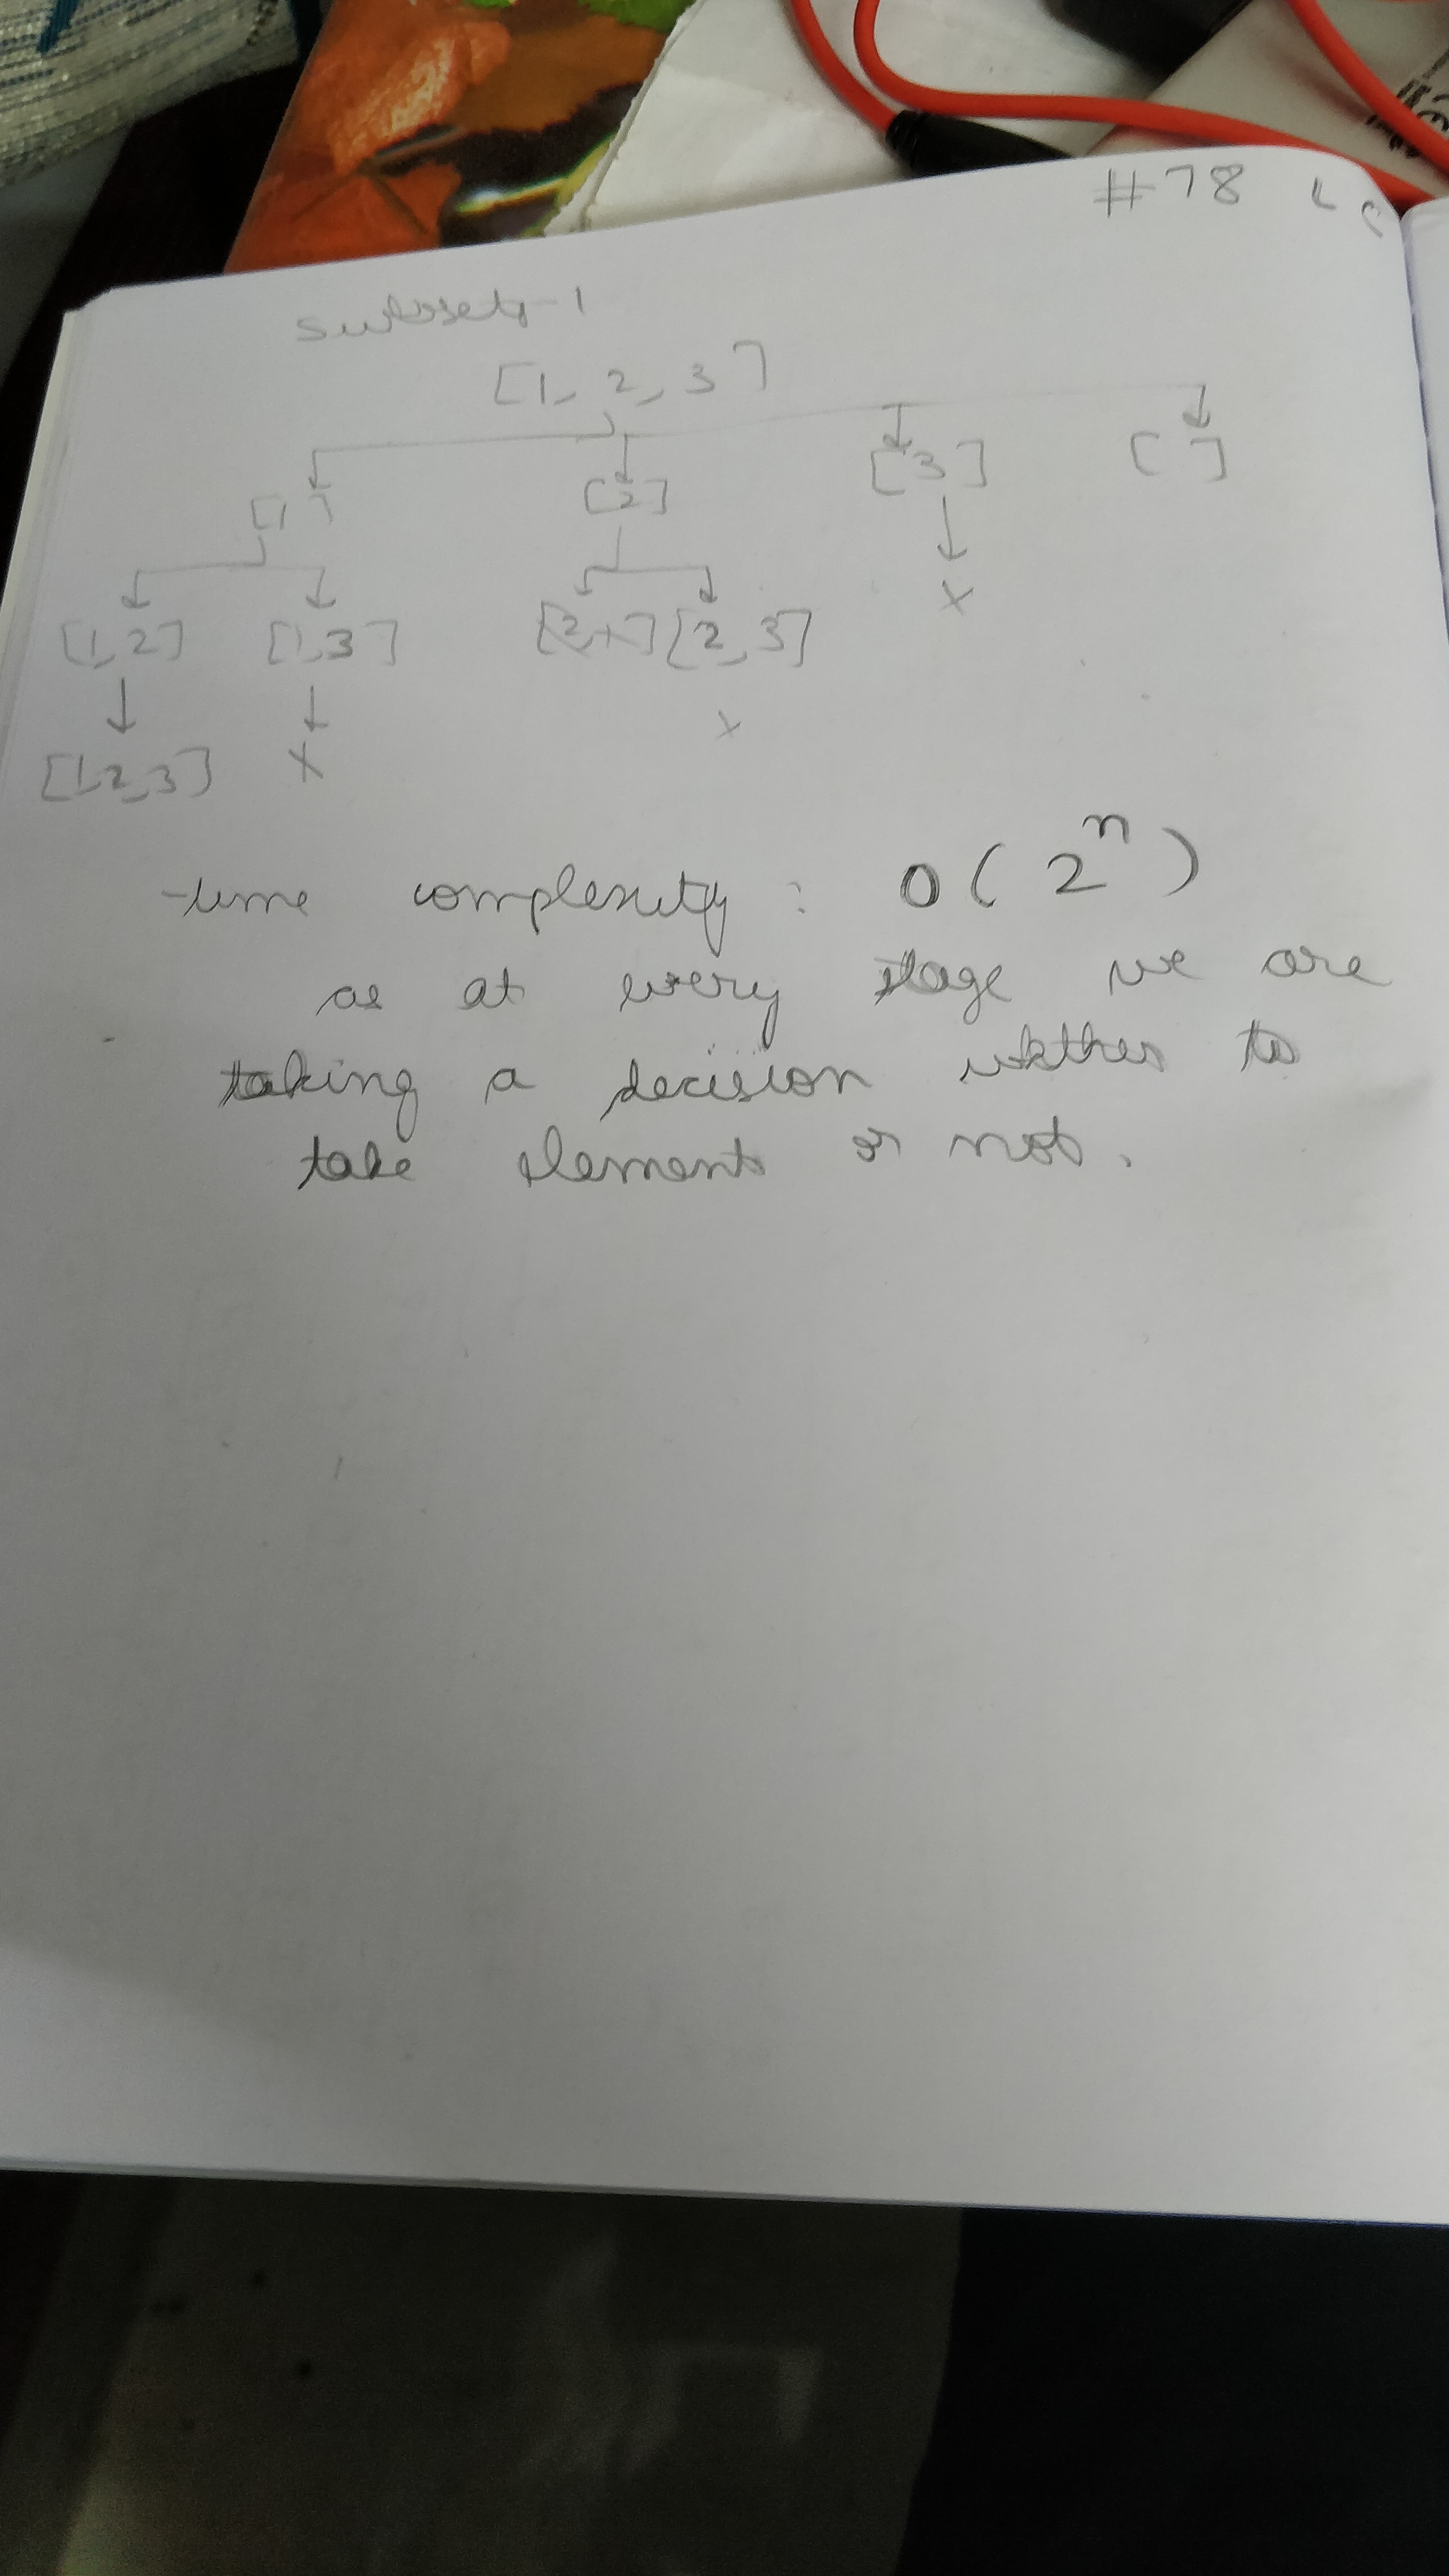 #78 LC
Subsets-1
[1, 2, 3]
[1] [2] [3] [ ]
[1,2] [1,3] [2,1] [2,3] x
[1,2,3] x x
time complexity : O(2^n)
as at every stage we are
taking a decision whether to
take element or not.